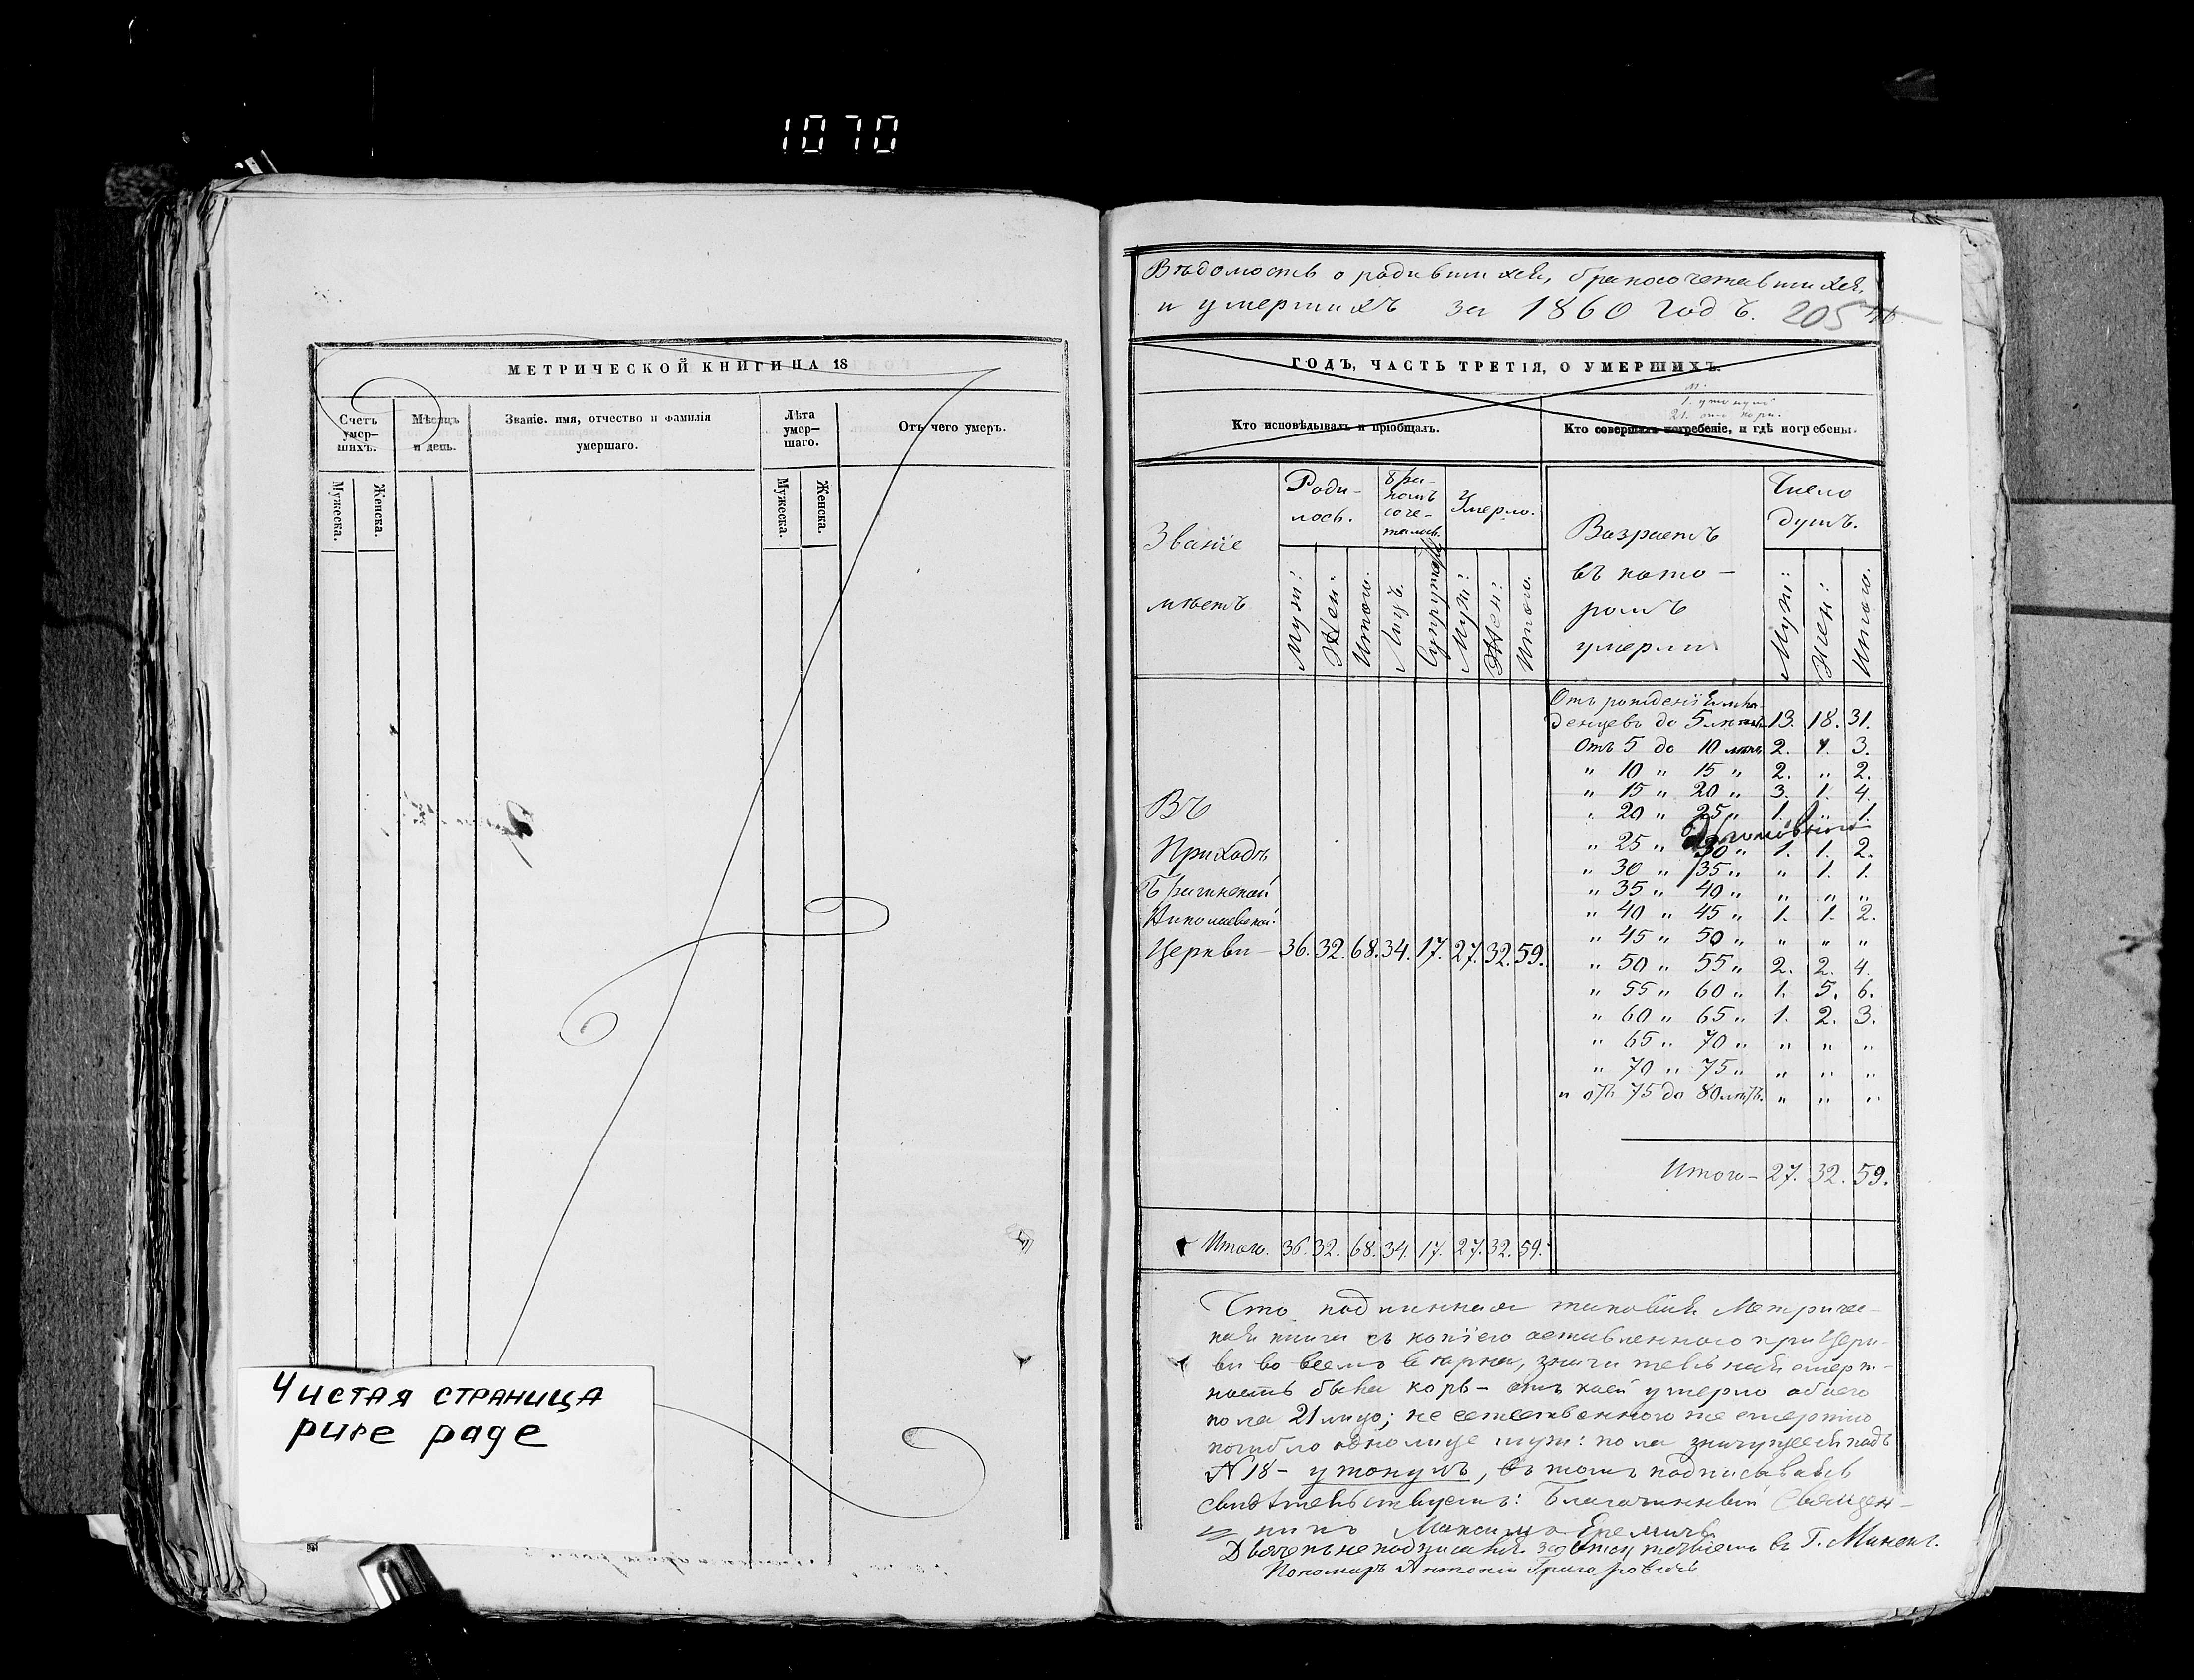 1070
МЕТРИЧЕСКОЙ КНИГИ НА 18
Счетъ умер-шихъ.
Мѣсяцъ и день.
Званіе. имя, отчество и фамилія умершаго.
Лѣта умер-шаго.
Отъ чего умеръ.
Мужеска.
Женска.
Мужеска.
Женска.
Чистая страница
pure page
Вѣдомость о родившихся, бракосочетавшихся,
и умершихъ за 1860 годъ. 205
ГОДЪ, ЧАСТЬ ТРЕТІЯ, О УМЕРШИХЪ.
Кто исповѣдывалъ и пріобщалъ.
Кто совершалъ погребеніе, и гдѣ погребены.
Званіе мѣстъ
Роди-лось.
Бра-комъ соче-талось.
Умерло.
Возрастъ въ кото-ромъ умерли
Число душъ.
Муж: Жен: Итого. Лицъ. Супружс Муж: Жен: Итого.
Муж: Жен: Итого.
Отъ рожденія мла-
денцевъ до 5 лѣтъ 13. 18. 31.
Отъ 5 до 10 лѣтъ 2. 1. 3.
" 10 " 15 " 2. " 2.
" 15 " 20 " 3. 1. 4.
" 20 " 25 " 1. " 1.
" 25 " 30 " 1. 1. 2.
" 30 " 35 " " 1. 1.
" 35 " 40 " " " "
" 40 " 45 " 1. 1. 2.
" 45 " 50 " " " "
" 50 " 55 " 2. 2. 4.
" 55 " 60 " 1. 5. 6.
" 60 " 65 " 1. 2. 3.
" 65 " 70 " " " "
" 70 " 75 " " " "
и отъ 75 до 80 лѣтъ. " " "
Въ
Приходѣ
Николаевской
Церкви - 36. 32. 68. 34. 17. 27. 32. 59.
Итого - 27. 32. 59.
Итого. 36. 32. 68. 34. 17. 27. 32. 59.
Что подлинная таковая Метриче-
кая книга съ копіею оставленною при Церк-
ви во всемъ вѣрна, значительная смерт-
ность была корь - отъ коей умерло обоего
пола 21 лицо; не естественною же смертію
погибло одно лице муж: пола значущееся подъ
N 18 - утонулъ, въ томъ подписываясь
свидѣтельствуемъ: Благочинный Священ-
никъ Максимъ Еремичъ
Дьячекъ не подписался за отсутствіемъ въ Г. Минскъ.
Пономарь Антоній Григоровичъ